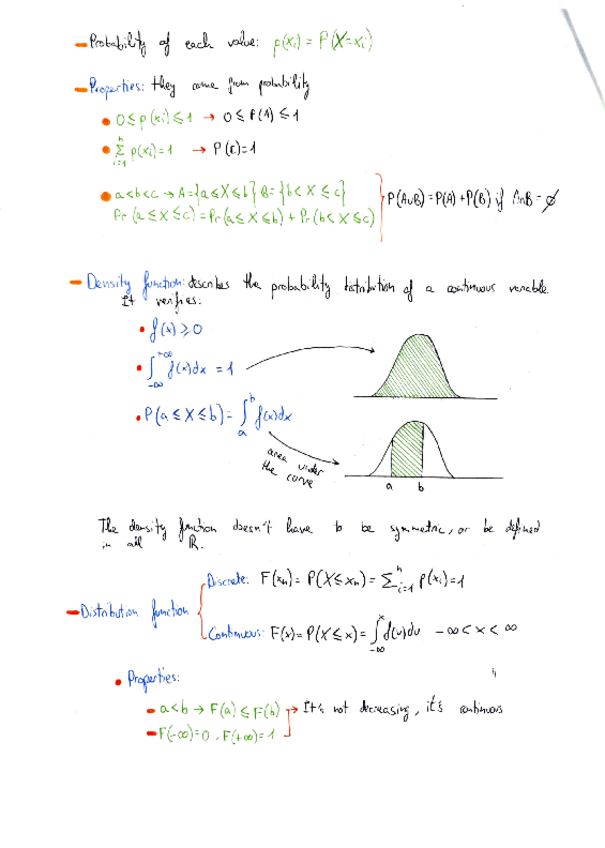 - Probability of each value: p(xi) = P(X=xi)
- Properties: they come from probability
• 0 ≤ p(xi) ≤ 1 → 0 ≤ P(A) ≤ 1
• ∑ i=1 n p(xi) = 1 → P(E) = 1
• a<b<c → A={a≤X≤b} B={b<X≤c}
Pr(a≤X≤c) = Pr(a≤X≤b) + Pr(b<X≤c) } P(A∪B) = P(A)+P(B) if A∩B = ∅
- Density function: describes the probability distribution of a continuous variable.
It verifies:
• f(x) ≥ 0
• ∫ -∞ +∞ f(x)dx = 1
• P(a≤X≤b) = ∫ a b f(x)dx
area under
the curve
a b
The density function doesn't have to be symmetric, or be defined
in all ℝ.
Discrete: F(xn) = P(X≤xn) = ∑ i=1 n p(xi) = 1
- Distribution function
Continuous: F(x) = P(X≤x) = ∫ -∞ x f(u)du -∞ < x < ∞
• Properties:
- a<b → F(a) ≤ F(b) → It's not decreasing, it's continuous
- F(-∞)=0, F(+∞)=1